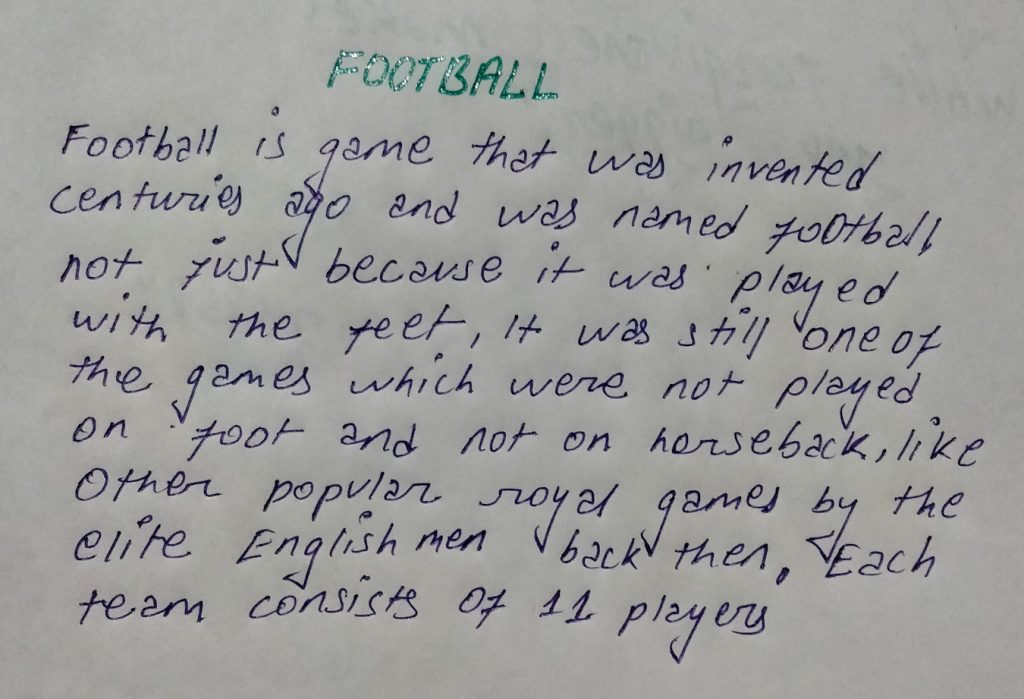 FOOTBALL
Football is game that was invented
centuries ago and was named football
not just because it was played
with the feet, It was still one of
the games which were not played
on foot and not on horseback, like
Other popular royal games by the
elite English men back then. Each
team consists of 11 players